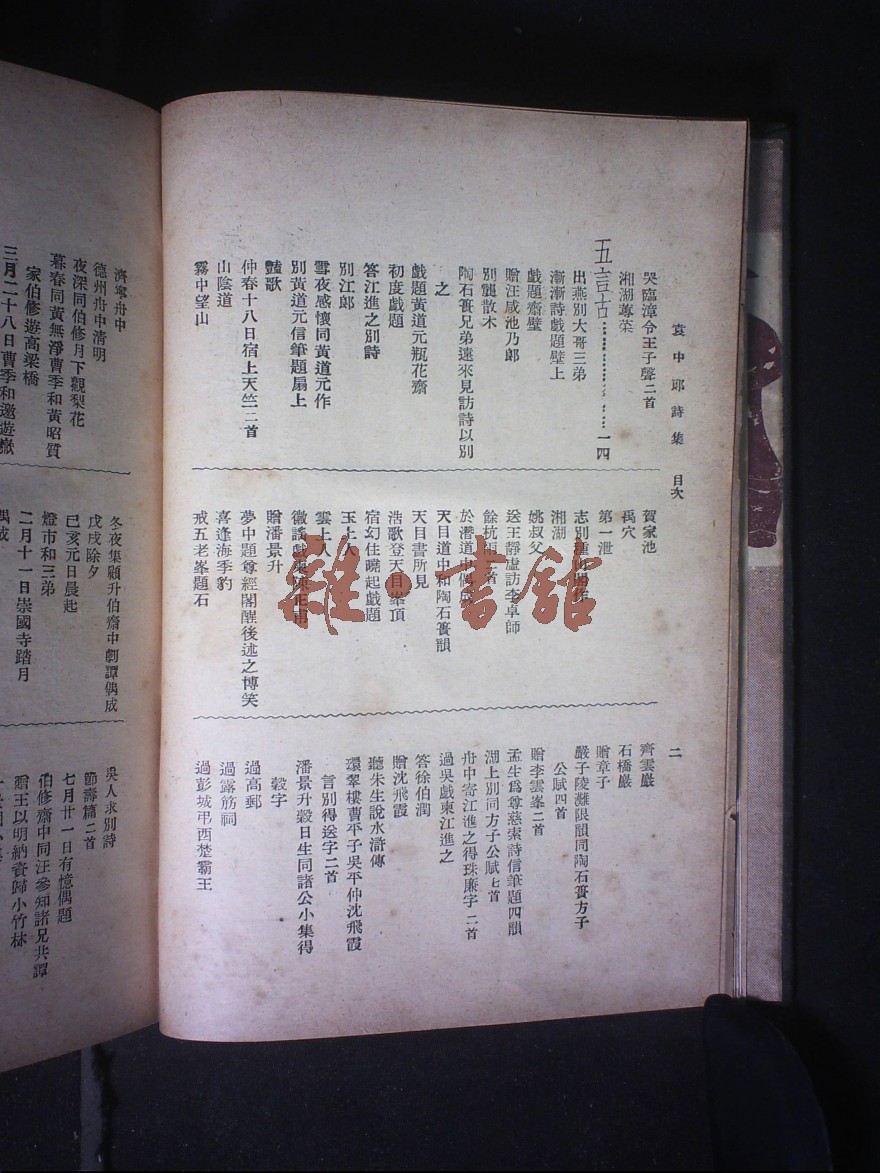 袁中郎詩集 目次
二
哭臨漳令王子聲二首
湘湖蓴菜
五言古 一四
出燕別大哥三弟
漸漸詩戲題壁上
戲題齋壁
贈汪咸池乃郎
別龔散木
陶石簣兄弟遠來見訪詩以別
之
戲題黃道元瓶花齋
初度戲題
答江進之別詩
別江郎
雪夜感懷同黃道元作
別黃道元信筆題扇上
豔歌
仲春十八日宿上天竺二首
山陰道
霧中望山
賀家池
禹穴
第一泄
湘湖
姚叔父
送王靜虛訪李卓師
餘杭雨二首
於潛道中
天目道中和陶石簣韻
天目書所見
浩歌登天目峯頂
宿幻住曉起戲題
玉上人
雲上人
贈潘景升
夢中題尊經閣醒後述之博笑
喜逢海季豹
戒五老峯題石
齊雲巖
石橋巖
贈章子
嚴子陵灘限韻同陶石簣方子
公賦四首
贈李雲峯二首
孟生爲尊慈索詩信筆題四韻
湖上別同方子公賦七首
舟中寄江進之得珠廉字二首
過吳戲柬江進之
答徐伯潤
贈沈飛霞
聽朱生說水滸傳
環翠樓曹平子吳平仲沈飛霞
言別得送字二首
潘景升穀日生同諸公小集得
穀字
過高郵
過露筋祠
過彭城弔西楚霸王
濟寧舟中
德州舟中清明
夜深同伯修月下觀梨花
暮春同黃無淨曹季和黃昭質
家伯修遊高梁橋
三月二十八日曹季和邀遊嶽
冬夜集顧升伯齋中劇譚偶成
戊戌除夕
己亥元日晨起
燈市和三弟
二月十一日崇國寺踏月
偶成
吳人求別詩
節壽篇二首
七月廿一日有憶偶題
伯修齋中同汪參知諸兄共譚
贈王以明納貲歸小竹林
雜書舘